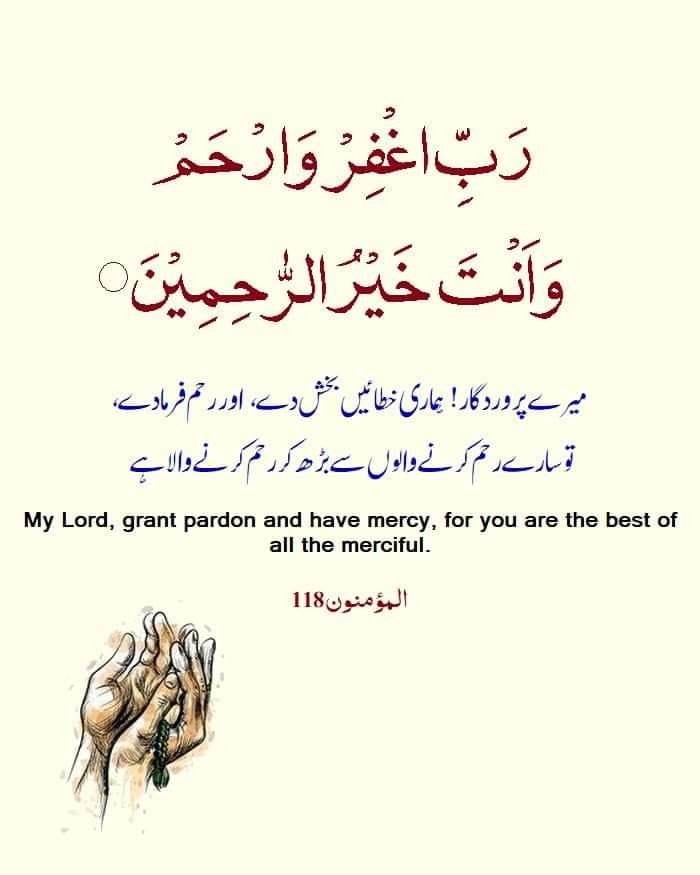 رَبِّ اغْفِرْ وَارْحَمْ
وَاَنْتَ خَيْرُ الرّٰحِمِيْنَ
میرے پروردگار! ہماری خطائیں بخش دے، اور رحم فرما دے،
تو سارے رحم کرنے والوں سے بڑھ کر رحم کرنے والا ہے
My Lord, grant pardon and have mercy, for you are the best of
all the merciful.
المؤمنون118